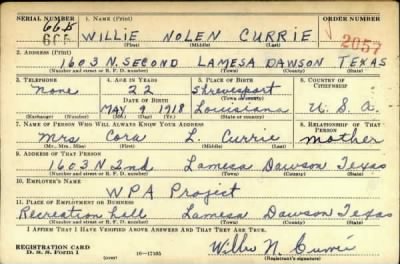 SERIAL NUMBER
1. NAME (Print)
ORDER NUMBER
665
WILLIE NOLEN CURRIE
2057
(First) (Middle) (Last)
2. ADDRESS (Print)
1603 N. SECOND LAMESA DAWSON TEXAS
(Number and street or R. F. D. number) (Town) (County) (State)
3. TELEPHONE
4. AGE IN YEARS
5. PLACE OF BIRTH
6. COUNTRY OF CITIZENSHIP
None
22
Shreveport
DATE OF BIRTH
(Town or county)
MAY 9 1918
Louisiana
U.S.A.
(Exchange) (Number) (Mo.) (Day) (Yr.) (State or country)
7. NAME OF PERSON WHO WILL ALWAYS KNOW YOUR ADDRESS
8. RELATIONSHIP OF THAT PERSON
Mrs Cora L. Currie mother
(Mr., Mrs., Miss) (First) (Middle) (Last)
9. ADDRESS OF THAT PERSON
1603 N 2nd Lamesa Dawson Texas
(Number and street or R. F. D. number) (Town) (County) (State)
10. EMPLOYER'S NAME
WPA Project
11. PLACE OF EMPLOYMENT OR BUSINESS
Recreation hall Lamesa Dawson Texas
(Number and street or R. F. D. number) (Town) (County) (State)
I AFFIRM THAT I HAVE VERIFIED ABOVE ANSWERS AND THAT THEY ARE TRUE.
REGISTRATION CARD
D. S. S. FORM 1
16—17105
Willie N. Currie
(Registrant's signature)